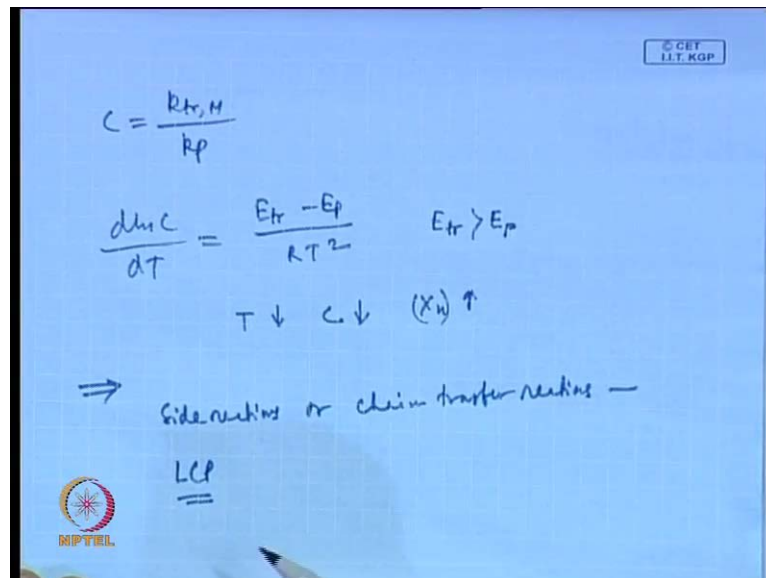 © CET
I.I.T. KGP
C = ktr,M / kp
dlnC / dT = Etr - Ep / RT² Etr > Ep
T ↓ C ↓ (Xn) ↑
⇒ Side reactions or chain transfer reactions —
LCP
NPTEL